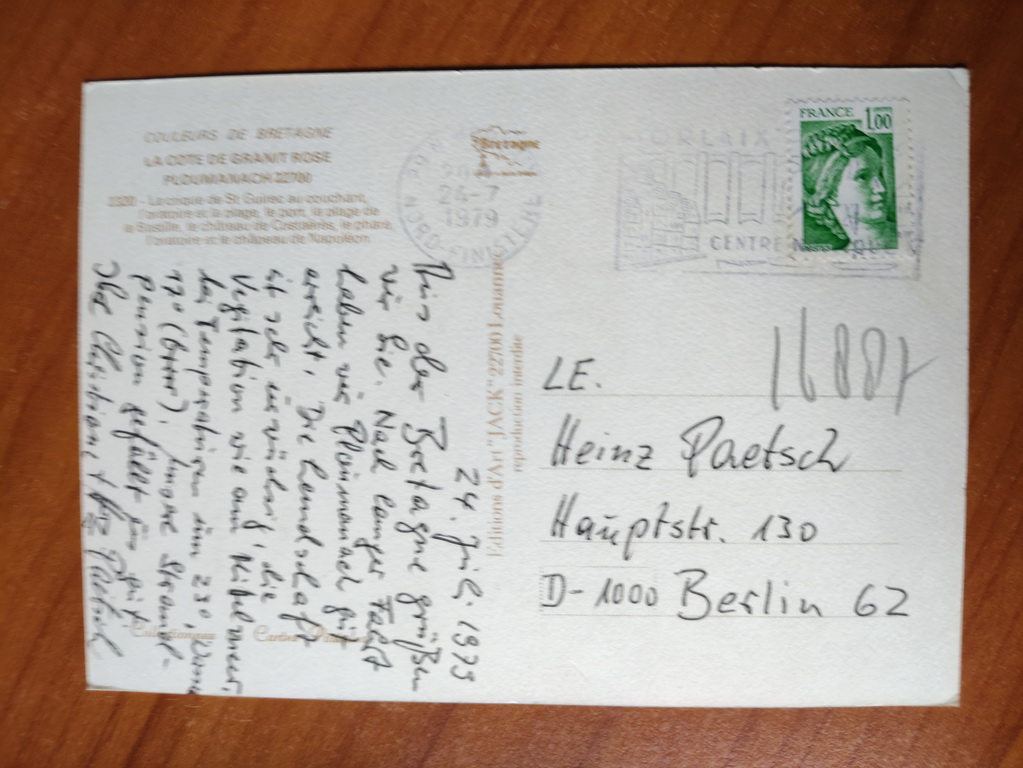 COULEURS DE BRETAGNE
LA COTE DE GRANIT ROSE
PLOUMANACH 22700
- La crique de St Guirec au couchant,
l'oratoire et la plage, le port, la plage de
la Bastille, le château de Costaérès, le phare,
l'oratoire et le château de Napoléon.
Bretagne
24-7
1979
NORD-FINISTERE
MORLAIX
CENTRE
FRANCE 1,00
24. Juli 1979
Aus der Bretagne grüßen
wir Sie. Nach langer Fahrt
haben wir Ploumanach gut
erreicht. Die Landschaft
ist sehr urwüchsig, die
Vegetation wie am Mittelmeer,
bei Temperaturen um 23°,
17° (Wasser). Unsere Strand-
pension gefällt uns gut.
Ihre Christiane +
Editions d'Art "JACK" 22700 Louannec
reproduction interdite
LE.
Heinz Paetsch
Hauptstr. 130
D-1000 Berlin 62